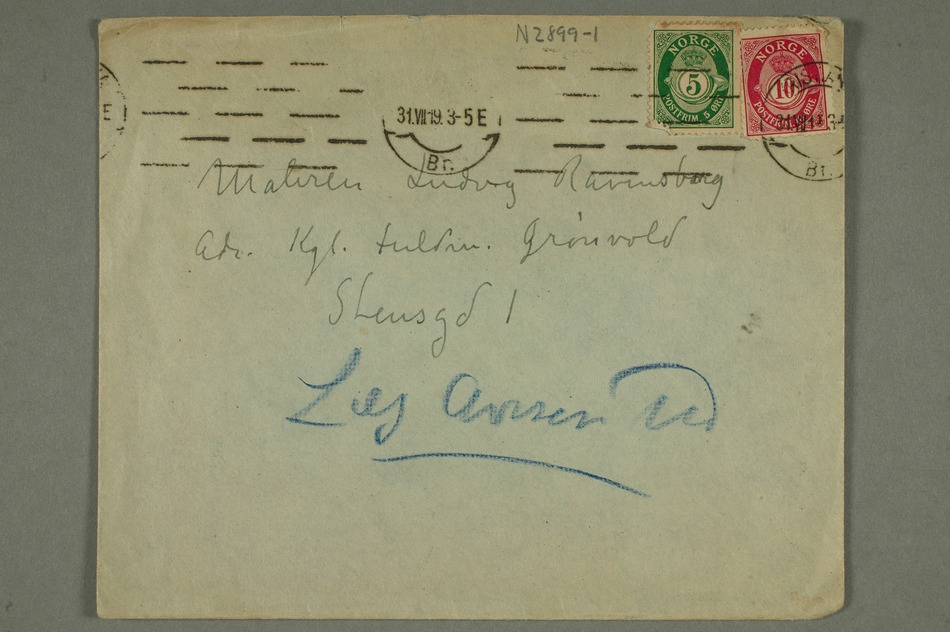 N2899-1
NORGE
5
POSTFRIM. 5 ØRE
NORGE
10
POSTFRIM. 10 ØRE
31.VII.19. 3-5 E
Br.
Br.
E
Maleren Ludvig Ravensberg
Adr. Kgl. fuldm. Grönvold
Stensgd 1
Læs Avisen